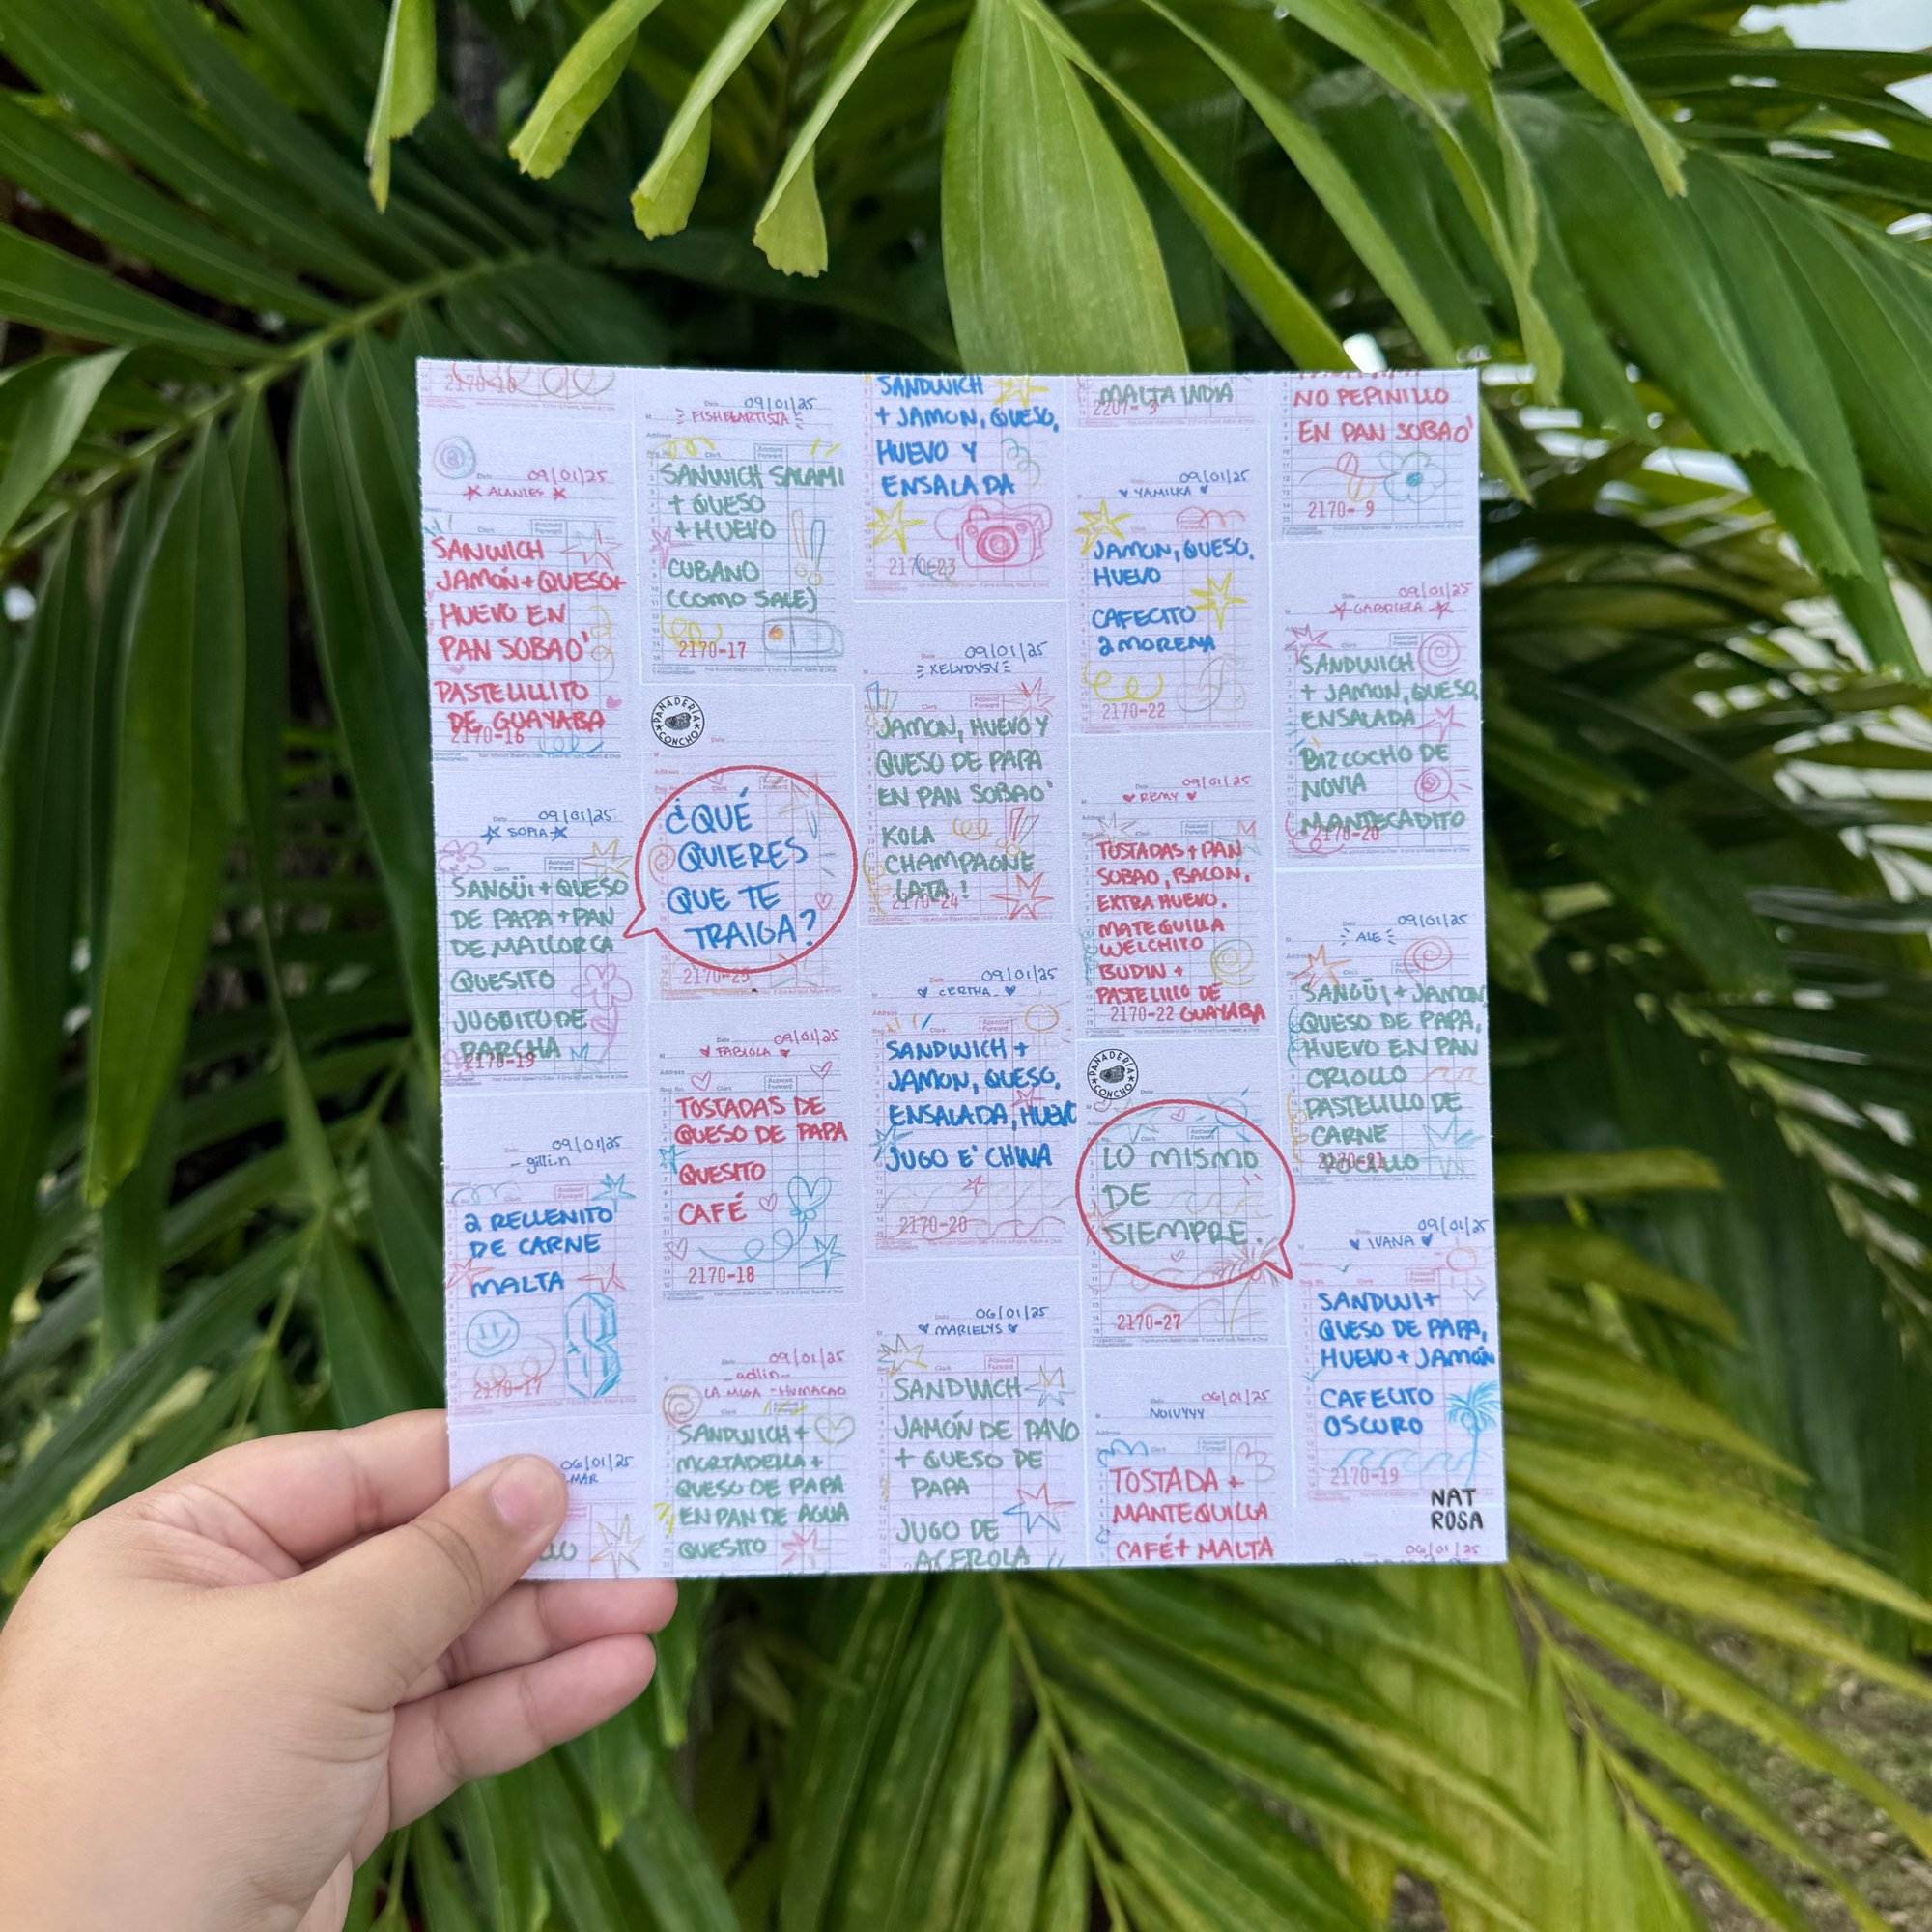 2170-18
09/01/25
ALANIES
SANWICH
JAMÓN+QUESO+
HUEVO EN
PAN SOBAO'
PASTELILLITO
DE GUAYABA
2170-16
Date 09/01/25
SOFIA
SANGÜI + QUESO
DE PAPA + PAN
DE MALLORCA
QUESITO
JUGUITO DE
PARCHA
2170-19
09/01/25
- gillian
2 RELLENITO
DE CARNE
MALTA
2170-17
06/01/25
MAR
Date 09/01/25
FISHBEARTISTA
Address
Account
Forward
SANWICH SALAMI
+ QUESO
+ HUEVO
CUBANO
(COMO SALE)
2170-17
PANADERÍA
CONCHO
Date
¿QUÉ
QUIERES
QUE TE
TRAIGA?
2170-25
09/01/25
FABIOLA
Address
TOSTADAS DE
QUESO DE PAPA
QUESITO
CAFÉ
2170-18
Date 09/01/25
-adlin-
LA MIGA - HUMACAO
SANDWICH +
MORTADELLA +
QUESO DE PAPA
EN PAN DE AGUA
QUESITO
SANDWICH
+ JAMON, QUESO,
HUEVO Y
ENSALADA
2170-23
Date 09/01/25
XELVDVSV
Account
Forward
JAMON, HUEVO Y
QUESO DE PAPA
EN PAN SOBAO'
KOLA
CHAMPAGNE
LATA!
2170-24
Date 09/01/25
CERTHA
SANDWICH +
JAMON, QUESO,
ENSALADA, HUEVO
JUGO E' CHINA
2170-20
Date 06/01/25
MARIELYS
SANDWICH
JAMÓN DE PAVO
+ QUESO DE
PAPA
JUGO DE
ACEROLA
MALTA INDIA
2207- 3
09/01/25
YAMILKA
JAMON, QUESO,
HUEVO
CAFECITO
2 MORENA
2170-22
09/01/25
REMY
TOSTADAS + PAN
SOBAO, BACON,
EXTRA HUEVO.
MATEQUILLA
WELCHITO
BUDIN +
PASTELILLO DE
2170-22 GUAYABA
PANADERÍA
CONCHO
LO MISMO
DE
SIEMPRE.
2170-27
Date 06/01/25
NOIVYYY
TOSTADA +
MANTEQUILLA
CAFÉ + MALTA
NO PEPINILLO
EN PAN SOBAO'
2170- 9
09/01/25
GABRIELA
SANDWICH
+ JAMON, QUESO,
ENSALADA
BIZCOCHO DE
NOVIA
MANTECADITO
2170-20
09/01/25
ALE
SANGÜI + JAMON,
QUESO DE PAPA,
HUEVO EN PAN
CRIOLLO
PASTELILLO DE
CARNE
2170-21
09/01/25
IVANA
SANDWI+
QUESO DE PAPA,
HUEVO + JAMÓN
CAFECITO
OSCURO
2170-19
NAT
ROSA
06/01/25